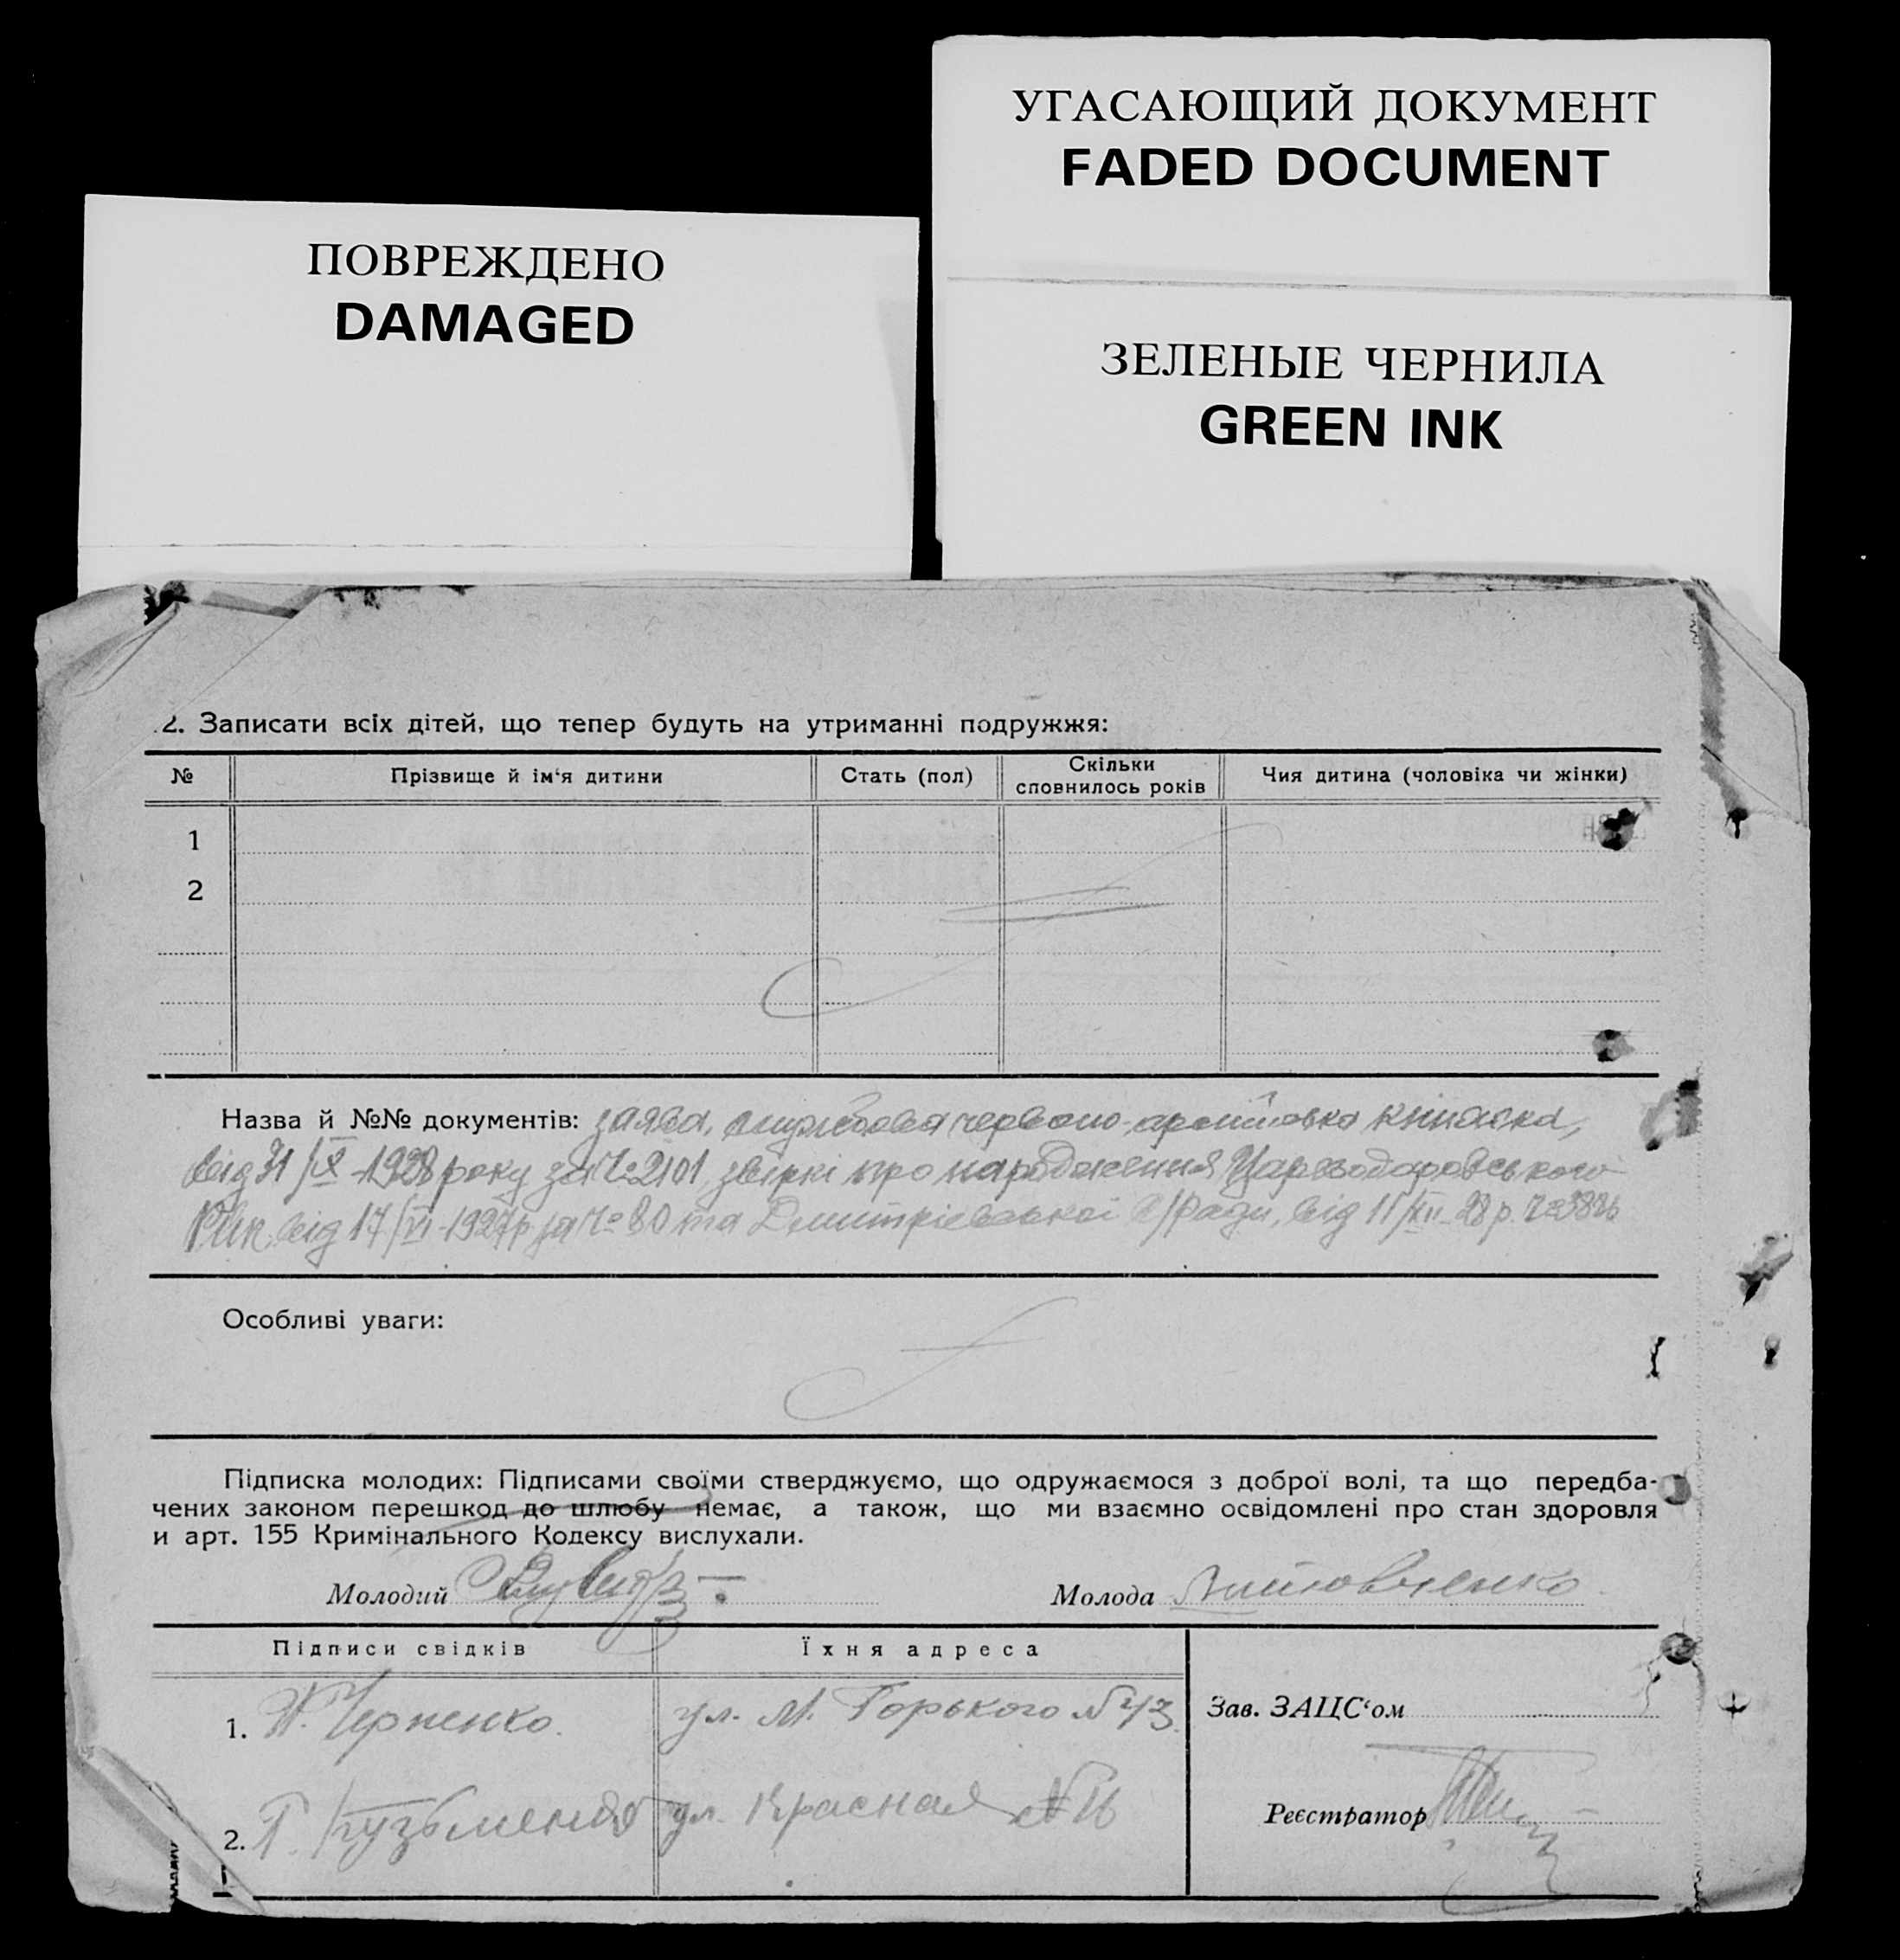 УГАСАЮЩИЙ ДОКУМЕНТ
FADED DOCUMENT
ПОВРЕЖДЕНО
DAMAGED
ЗЕЛЕНЫЕ ЧЕРНИЛА
GREEN INK
2. Записати всіх дітей, що тепер будуть на утриманні подружжя:
№ Прізвище й ім‘я дитини Стать (пол) Скільки сповнилось років Чия дитина (чоловіка чи жінки)
1
2
Назва й №№ документів: заява, службова червоно-армійська книжка,
від 31/X-1928 року за №2101, звіркі про народження Царебодаровського
Рик від 17/VI-1927р за №80 та Дмитрієвської с/Ради, від 11/XII-28 р.
Особливі уваги:
Підписка молодих: Підписами своїми стверджуємо, що одружаємося з доброї волі, та що передба-
чених законом перешкод до шлюбу немає, а також, що ми взаємно освідомлені про стан здоровля
и арт. 155 Кримінального Кодексу вислухали.
Молодий
Молода Литовченко
Підписи свідків Їхня адреса
1. Черненко. ул. М. Горького №43
Зав. ЗАЦС‘ом
2. Г. Кузьменко ул. Красная №16
Реєстратор